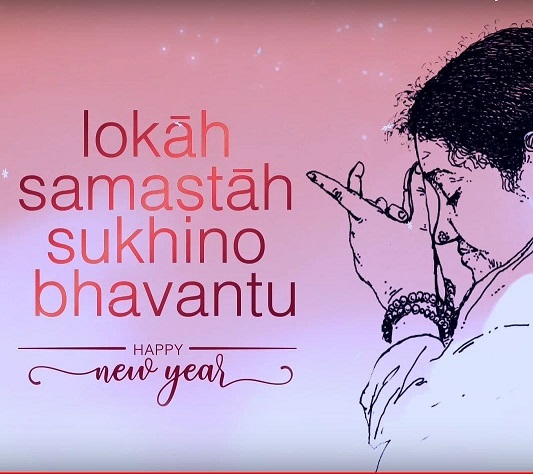 lokāh
samastāh
sukhino
bhavantu
HAPPY
new year